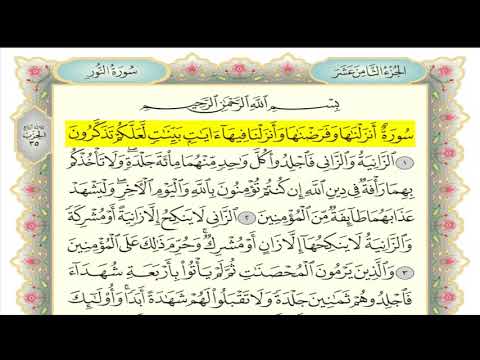 الجزء الثامن عشر
سورة النور
بسم الله الرحمن الرحيم
سُورَةٌ أَنزَلْنَٰهَا وَفَرَضْنَٰهَا وَأَنزَلْنَا فِيهَآ ءَايَٰتٍۭ بَيِّنَٰتٍ لَّعَلَّكُمْ تَذَكَّرُونَ
١ ٱلزَّانِيَةُ وَٱلزَّانِى فَٱجْلِدُوا۟ كُلَّ وَٰحِدٍ مِّنْهُمَا مِا۟ئَةَ جَلْدَةٍ ۖ وَلَا تَأْخُذْكُم
بِهِمَا رَأْفَةٌ فِى دِينِ ٱللَّهِ إِن كُنتُمْ تُؤْمِنُونَ بِٱللَّهِ وَٱلْيَوْمِ ٱلْءَاخِرِ ۖ وَلْيَشْهَدْ
عَذَابَهُمَا طَآئِفَةٌ مِّنَ ٱلْمُؤْمِنِينَ ٢ ٱلزَّانِى لَا يَنكِحُ إِلَّا زَانِيَةً أَوْ مُشْرِكَةً
وَٱلزَّانِيَةُ لَا يَنكِحُهَآ إِلَّا زَانٍ أَوْ مُشْرِكٌ ۚ وَحُرِّمَ ذَٰلِكَ عَلَى ٱلْمُؤْمِنِينَ
٣ وَٱلَّذِينَ يَرْمُونَ ٱلْمُحْصَنَٰتِ ثُمَّ لَمْ يَأْتُوا۟ بِأَرْبَعَةِ شُهَدَآءَ
فَٱجْلِدُوهُمْ ثَمَٰنِينَ جَلْدَةً وَلَا تَقْبَلُوا۟ لَهُمْ شَهَٰدَةً أَبَدًا ۚ وَأُو۟لَٰٓئِكَ
الحزب
٣٥